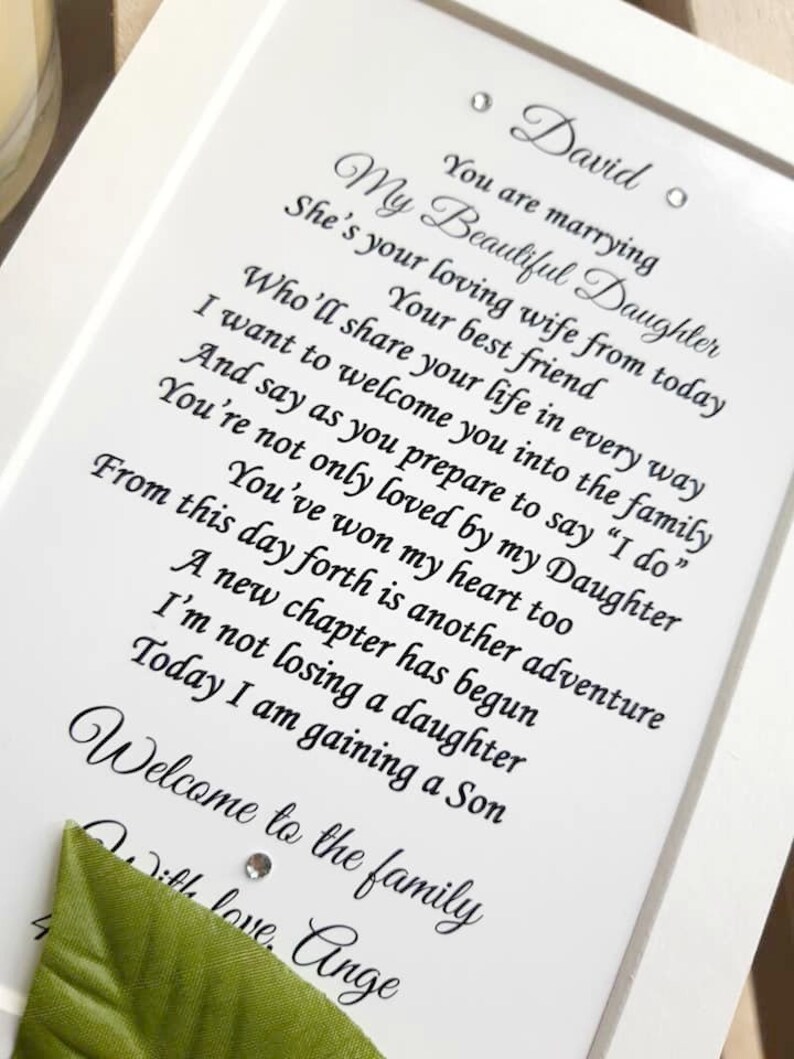 David
You are marrying
My Beautiful Daughter
She's your loving wife from today
Your best friend
Who'll share your life in every way
I want to welcome you into the family
And say as you prepare to say “I do”
You're not only loved by my Daughter
You've won my heart too
From this day forth is another adventure
A new chapter has begun
I'm not losing a daughter
Today I am gaining a Son
Welcome to the family
With love, Ange